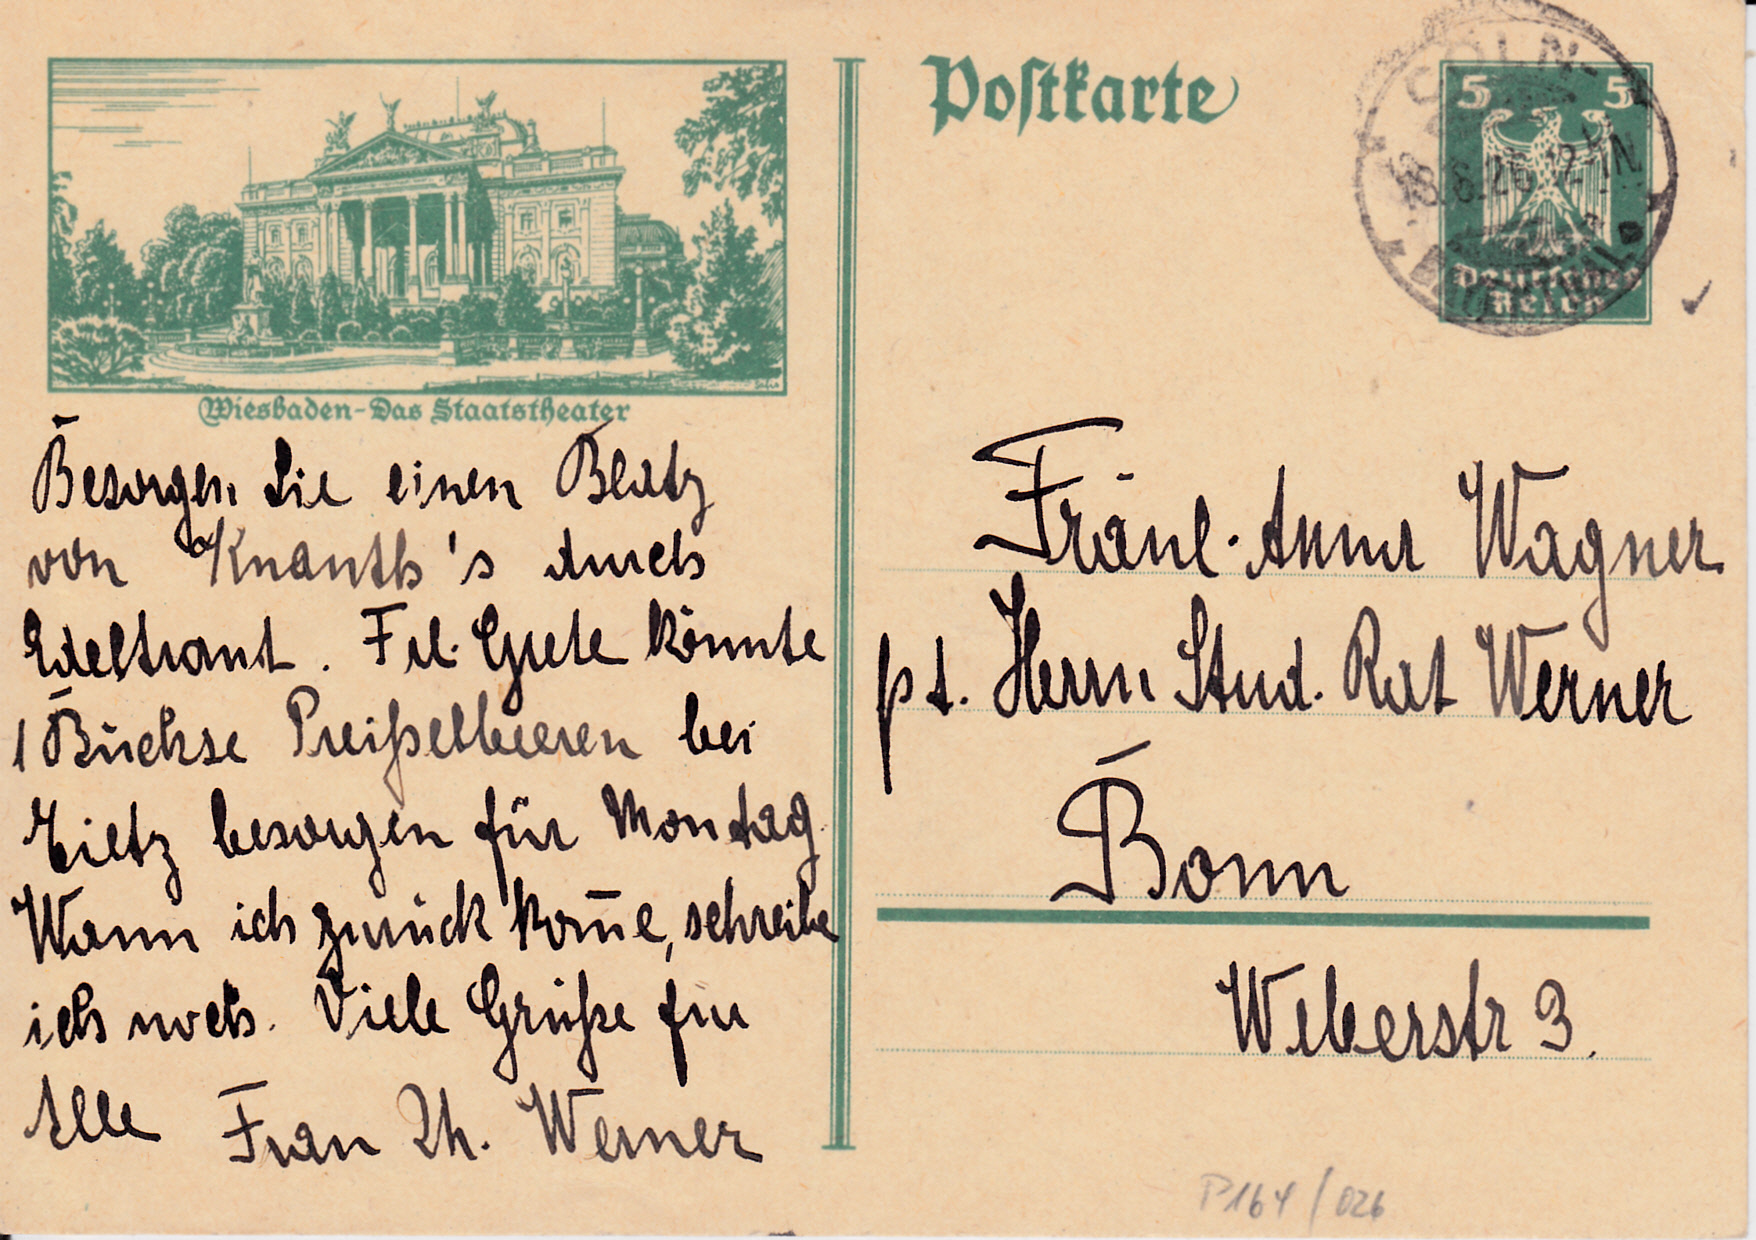 Postkarte
CÖLN-
18.8.26. 12-1 N.
5 5
Deutsches
Reich
Wiesbaden-Das Staatstheater
Besorgen Sie einen Blatz
von Knauth's durch
Edeltraut. Frl. Grete könnte
1 Büchse Preißelbeeren bei
Tietz besorgen für Montag
Wann ich zurück kom̅e, schreibe
ich noch. Viele Grüße für
Alle Frau Th. Werner
Fräul. Anna Wagner
pt. Herrn Stud. Rat Werner
Bonn
Weberstr 3.
P164/026